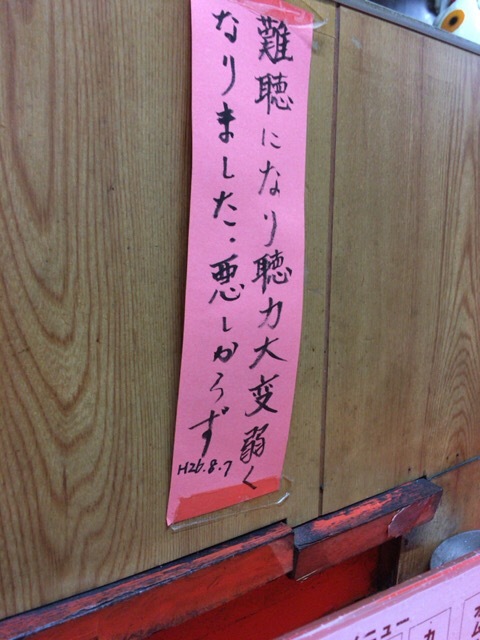 難聴になり聴力大変弱く
なりました.悪しからず
H26.8.7
メニュー